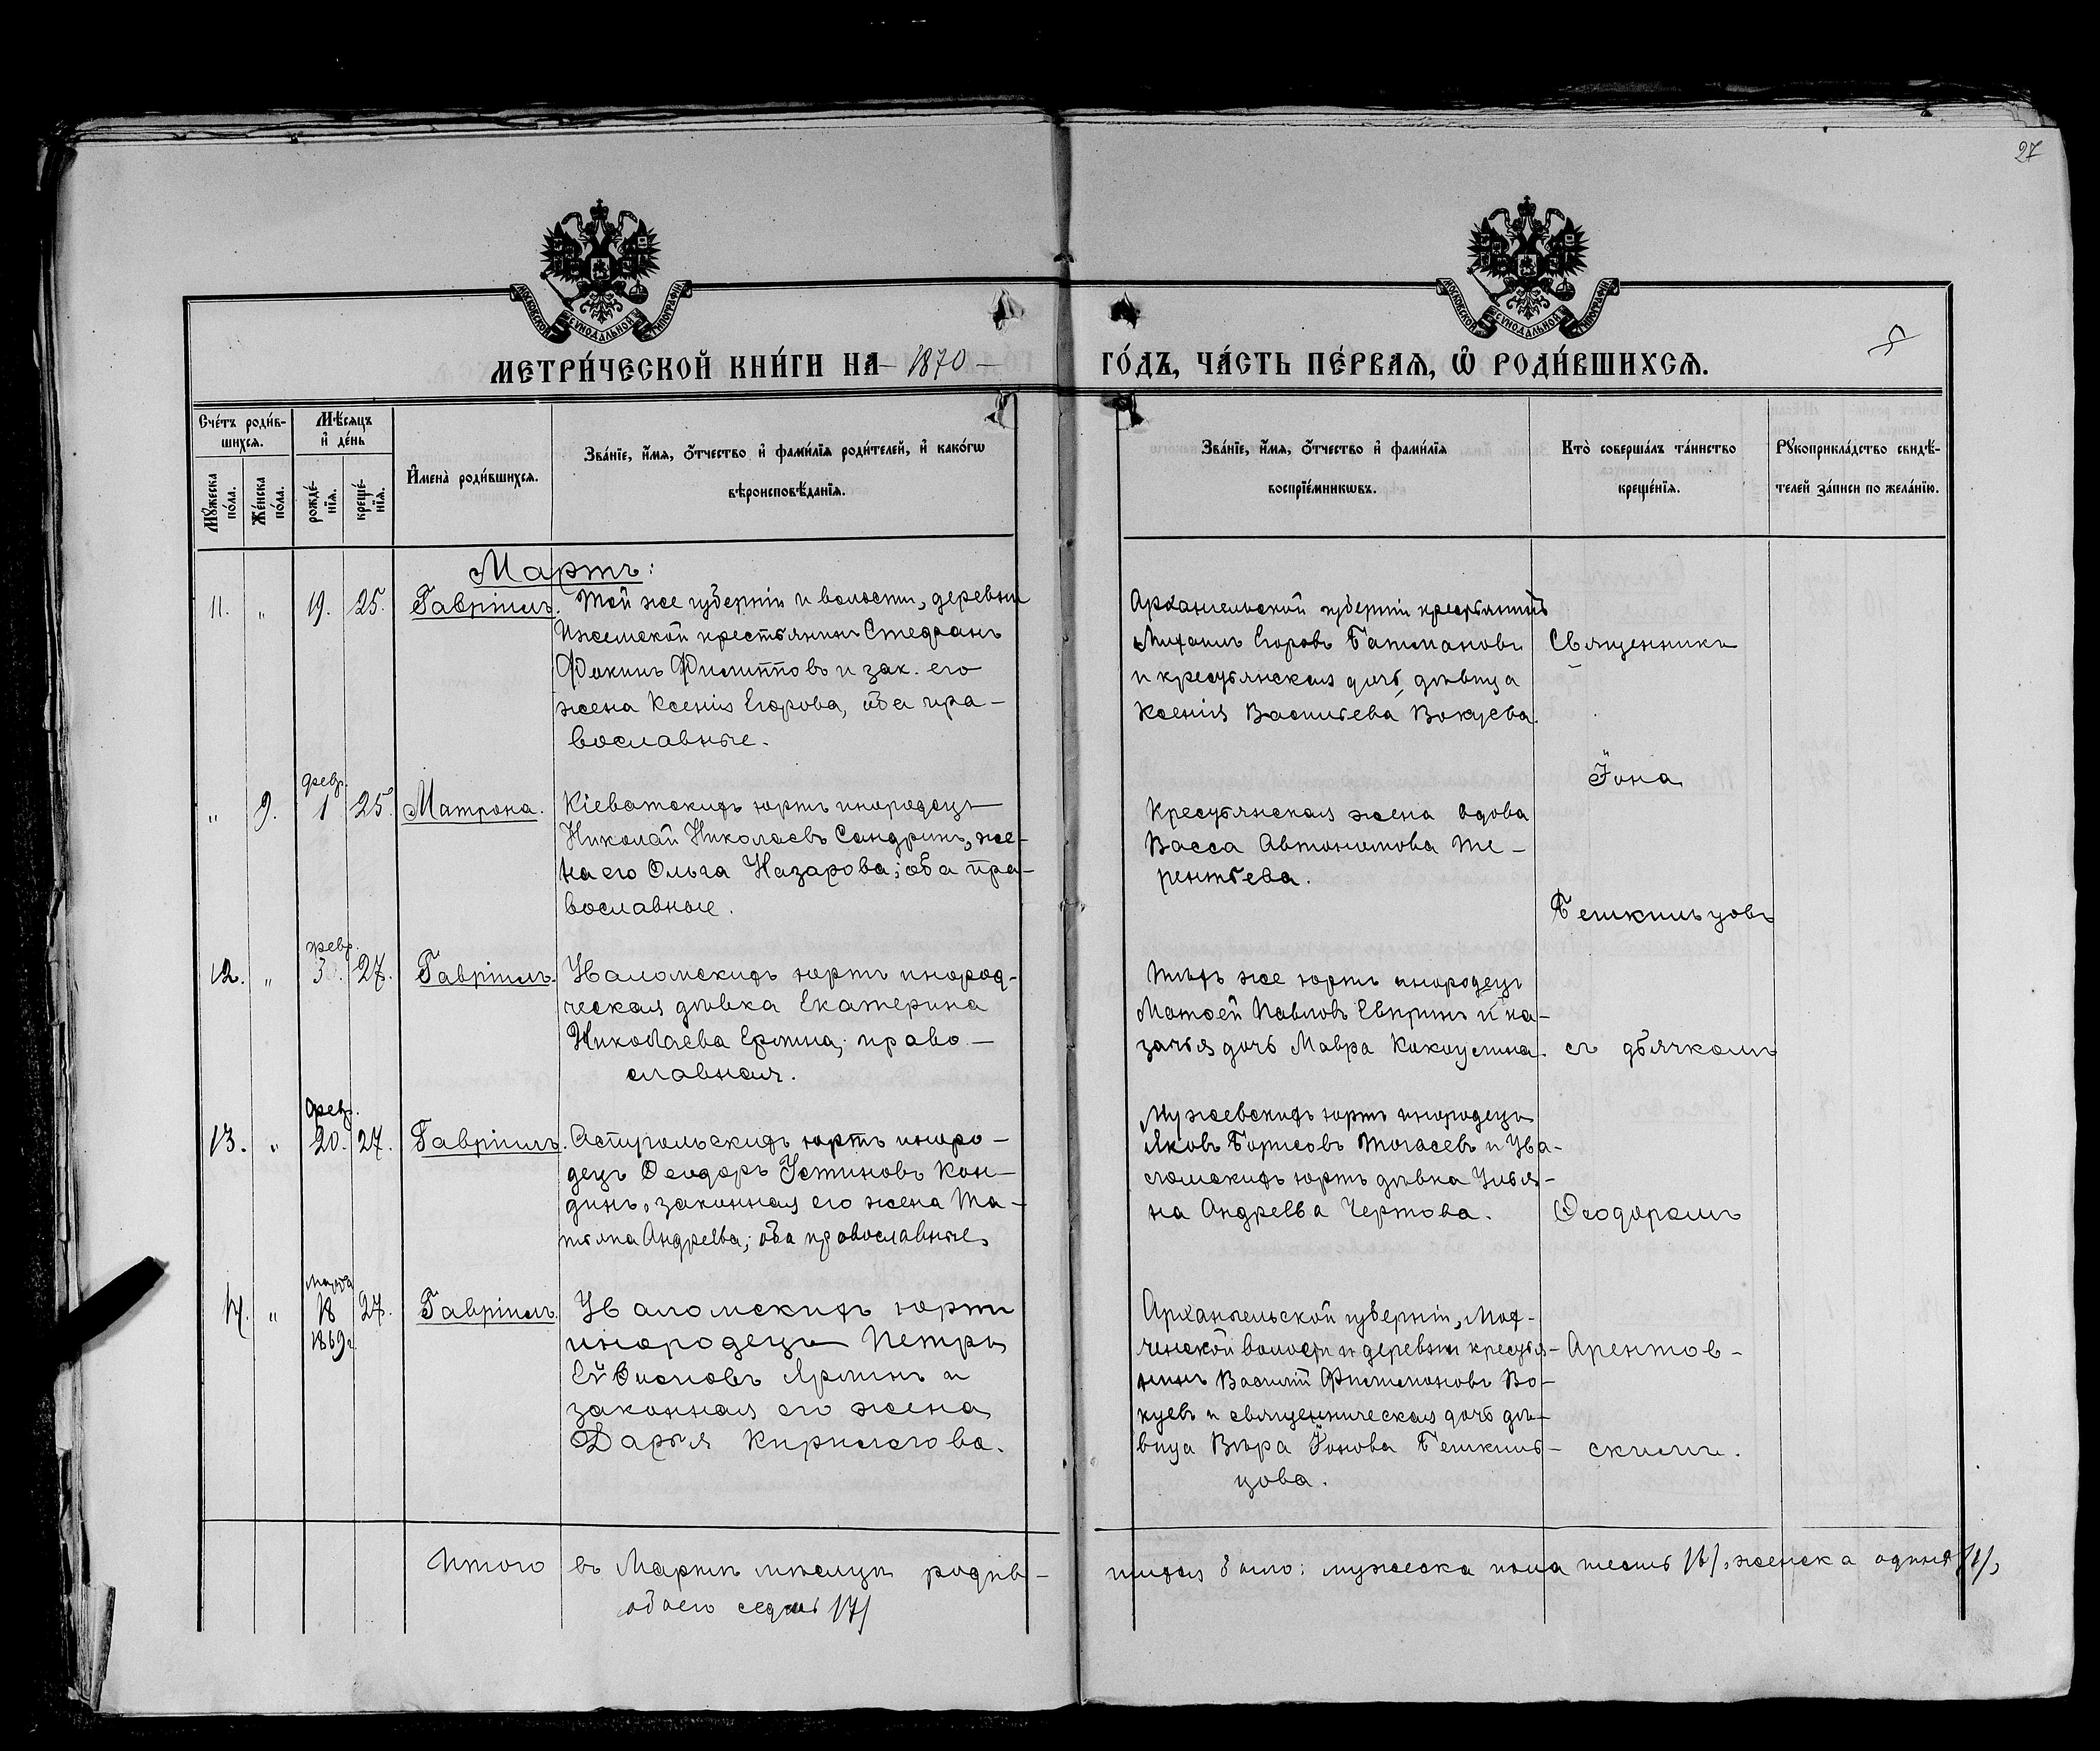 27
МОСКОВСКОЙ СѴНОДАЛЬНОЙ ТИПОГРАФІИ
МОСКОВСКОЙ СѴНОДАЛЬНОЙ ТИПОГРАФІИ
МЕТРИ́ЧЕСКОЙ КНИ́ГИ НА 1870 ГО́ДЪ, ЧА́СТЬ ПЕ́РВАѦ, Ѡ҆ РОДИ́ВШИХСѦ.
Сче́тъ роди́в-
шихсѧ.
Мꙋ́жеска по́ла.
Же́нска по́ла.
Мѣ́сѧцъ и҆ де́нь
рожде́-
нїѧ.
креще́-
нїѧ.
И҆мена̀ роди́вшихсѧ.
Зва́нїе, и҆́мѧ, ѻ҆́тчество и҆ фами́лїѧ роди́телей, и҆ како́гѡ
вѣроисповѣ́данїѧ.
Зва́нїе, и҆́мѧ, ѻ҆́тчество и҆ фами́лїѧ
воспрїе́мникѡвъ.
Кто̀ соверша́лъ та́инство
креще́нїѧ.
Рꙋкоприкла́дство свидѣ́-
телей за́писи по жела́нїю.
Мартъ:
11. " 19. 25. Гавріилъ. Той же губерніи и волости, деревни
Ижемской крестьянинъ Стефанъ
Фокинъ Филипповъ и зак. его
жена Ксенія Егорова, оба пра-
вославные.
Архангельской губерніи крестьянинъ
Михаилъ Егоровъ Батмановъ
и крестьянская дочь, дѣвица
Ксенія Васильева Вокуева.
Священникъ
Іона
" 9. февр. 1 25. Матрона. Кіеватскихъ юртъ инородецъ
Николай Николаевъ Сандринъ, же-
на его Ольга Назарова; оба пра-
вославные.
Крестьянская жена вдова
Васса Автономова Те-
рентьева.
Бешкильцовъ
12. " февр. 3. 27. Гавріилъ. Наломскихъ юртъ инород-
ческая дѣвка Екатерина
Николаева Ермина, право-
славная.
Тѣхъ же юртъ инородецъ
Матѳей Павловъ Евпринъ и ка-
зачья дочь Мавра Кокоулина.
съ дьячкомъ
13. " февр. 20. 27. Гавріилъ. Аспугольскихъ юртъ иноро-
децъ Ѳеодоръ Устиновъ Кон-
динъ, законная его жена Та-
тьяна Андреева; оба православные.
Мужевскихъ юртъ инородецъ
Яковъ Борисовъ Тогасевъ и Ува-
сломскихъ юртъ дѣвка Улья-
на Андреева Чертова.
Ѳеодоромъ
14. " марта 18 1869г. 27. Гавріилъ. Аломскихъ юртъ
инородецъ Петръ
Ярминъ и
законная его жена
Дарья Кириллова.
Архангельской губерніи, Мох-
ченской волости и деревни крестья-
нинъ Василій Филимоновъ Во-
куевъ и священническая дочь дѣ-
вица Вѣра Іонова Бешкиль-
цова.
Арентов-
скимъ.
Итого въ Мартѣ мѣсяцѣ родив-
шихся было: мужеска пола шесть /6/, женска одинъ /1/,
обоего седмь /7/